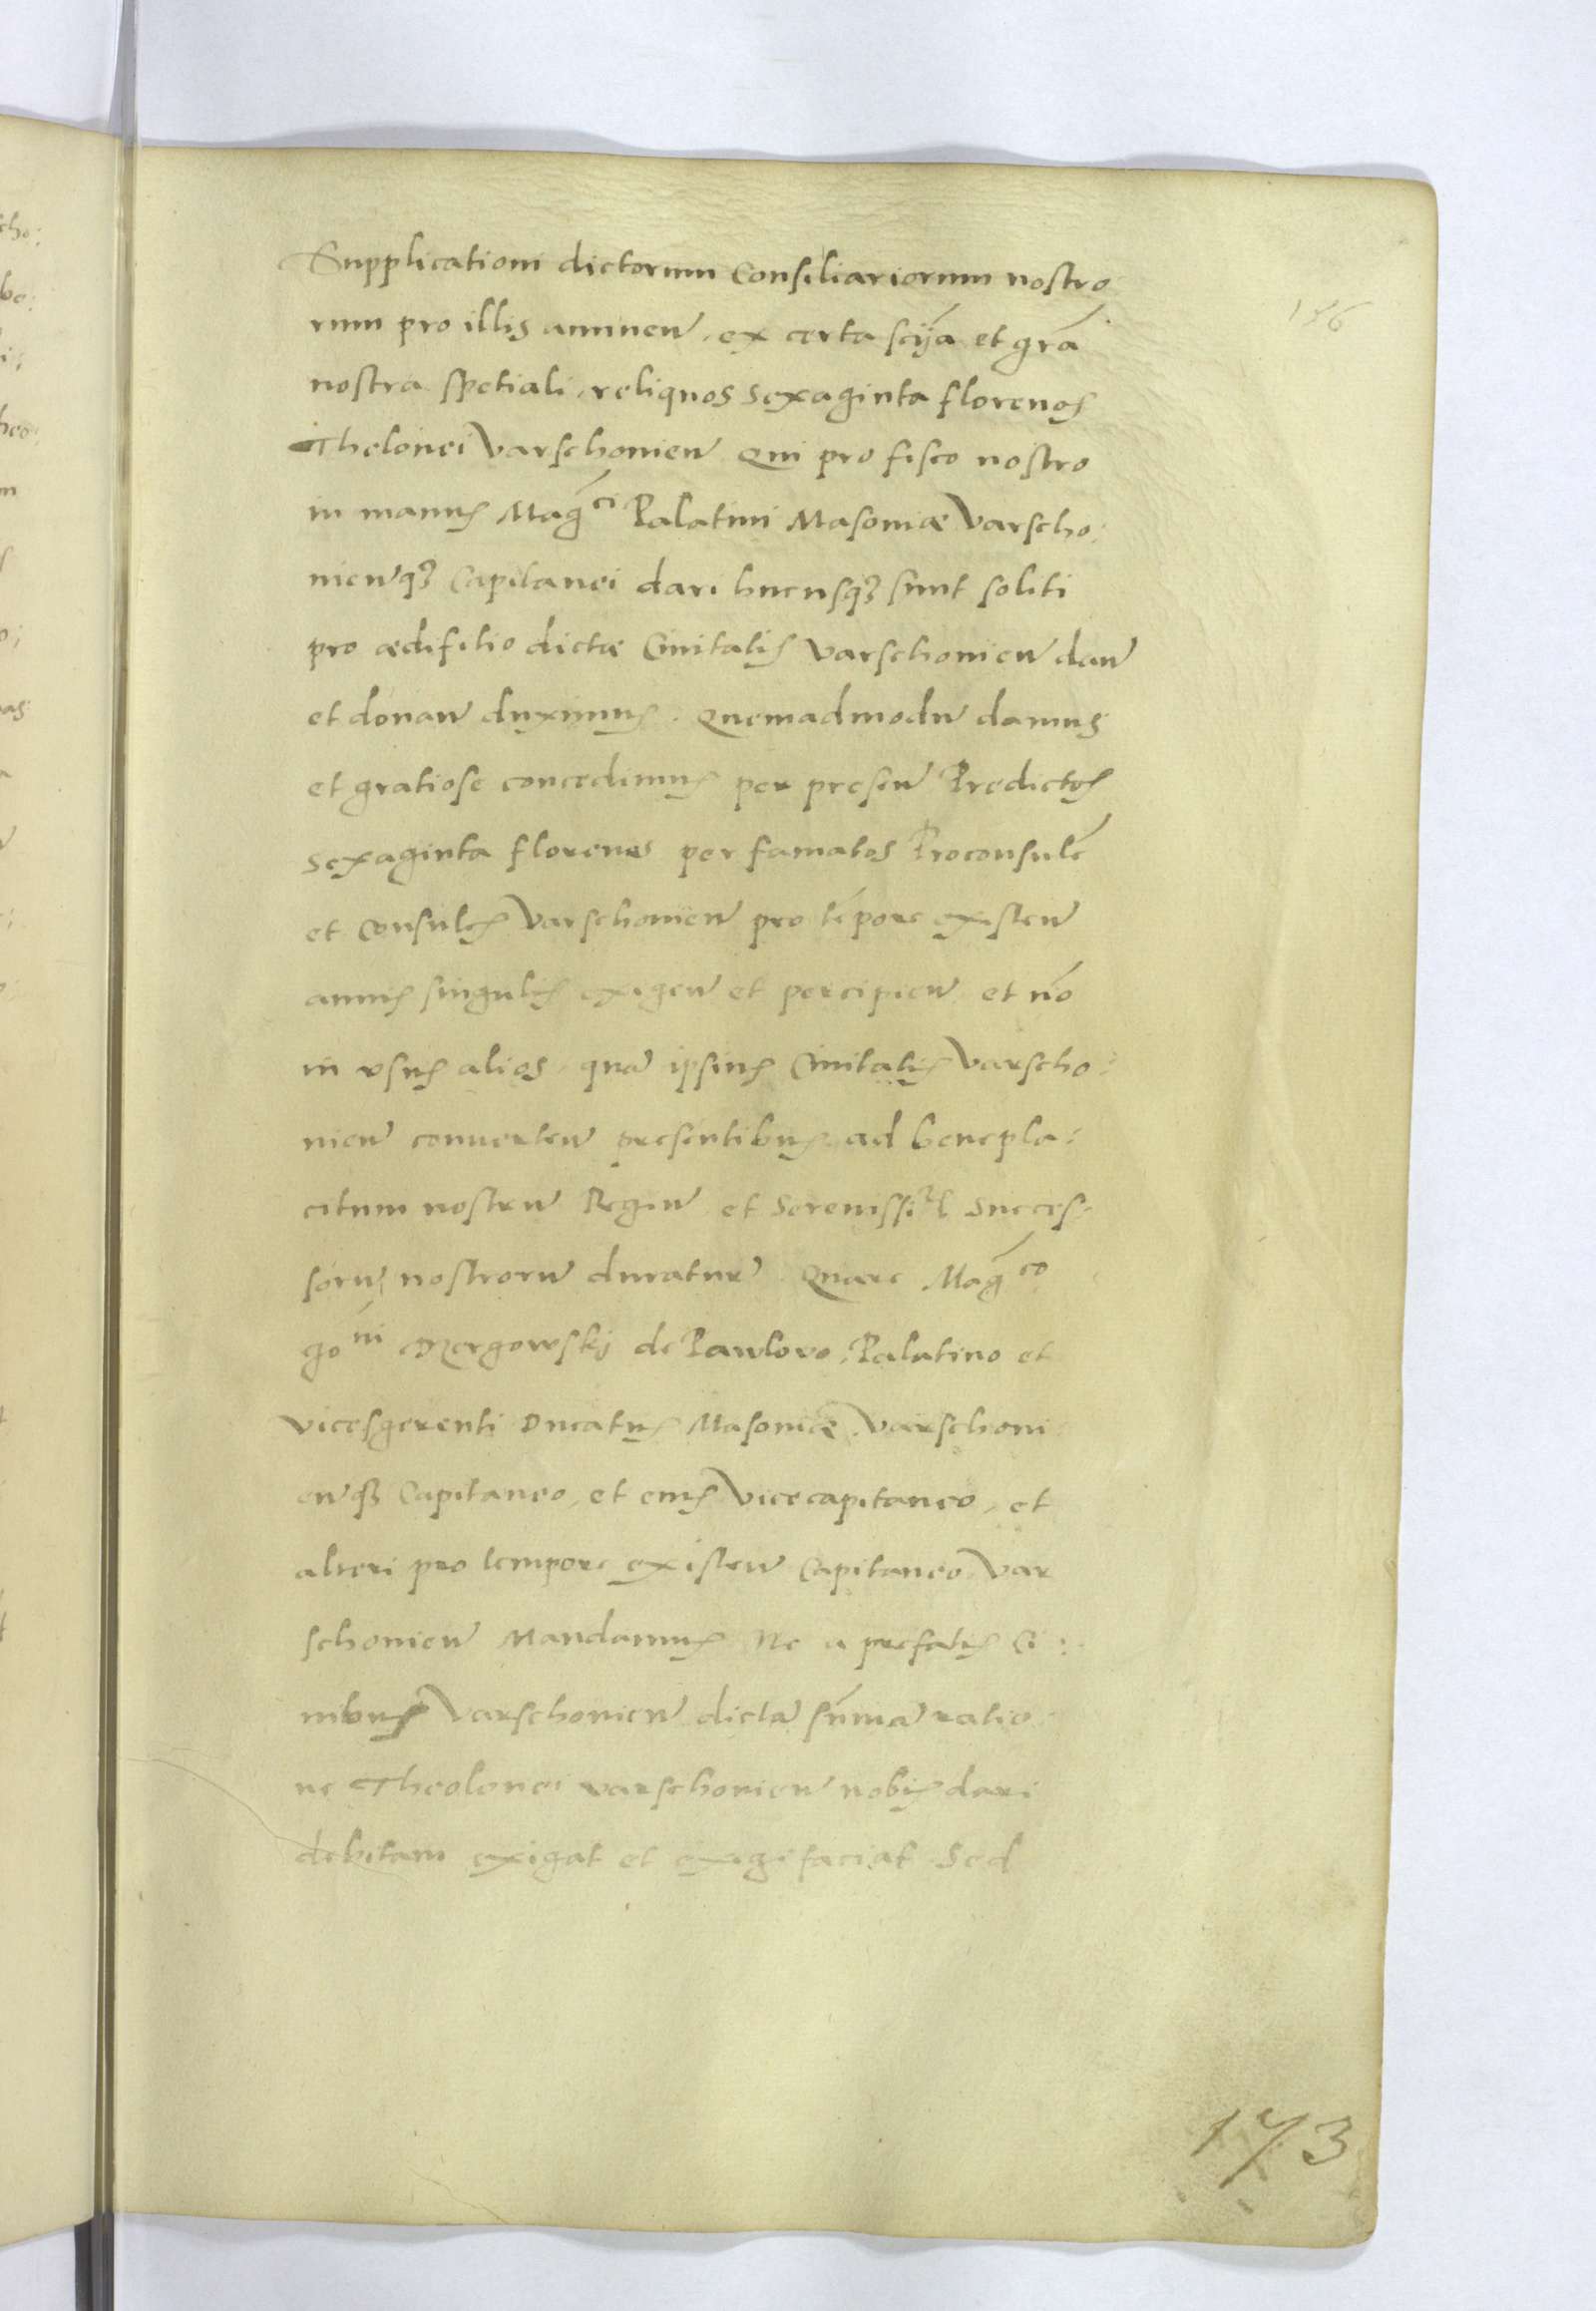 Supplicationi dictorum Consiliariorum nostro
156
rum pro illis annuen̄, ex certa scīja et grā
nostra spetiali, reliquos sexaginta florenos
Thelonei Varschonien̄ Qui pro fisco nostro
in manus Mag̃ci Palatini Masoniæ Varscho:
nien̄qȝ Capitanei dari hucusqȝ sunt soliti
pro ædifitio dictæ Ciuitatis Varschonien̄ dan̄
et donan̄ duximus. Quemadmodū damus
et gratiose concedimus per presen̄ Predictos
sexaginta florenos per famatos Proconsulē
et Consules Varschonien̄ pro tēpore existen̄
annis singulis exigen̄ et percipien̄ et nō
in vsus alios, quā ipsius Ciuitatis Varscho:
nien̄ conuerten̄ presentibus ad benepla:
citum nostrū Regiū et Sereniss: Succes
sorū nostrorū duraturū Quare Mag̃co
Joni Dzergowskj de Pawlovo, Palatino et
vicesgerenti Ducatus Masoniæ Varschoni
en̄qȝ Capitaneo, et eius Vicecapitaneo, et
alteri pro tempore existen̄ Capitaneo Var
schonien̄ Mandamus Ne a prefatis Ci:
uibus Varschonien̄ dictā sūmā ratio
ne Theolonei varschonien̄ nobis dari
debitam exigat et exigi faciat Sed
173